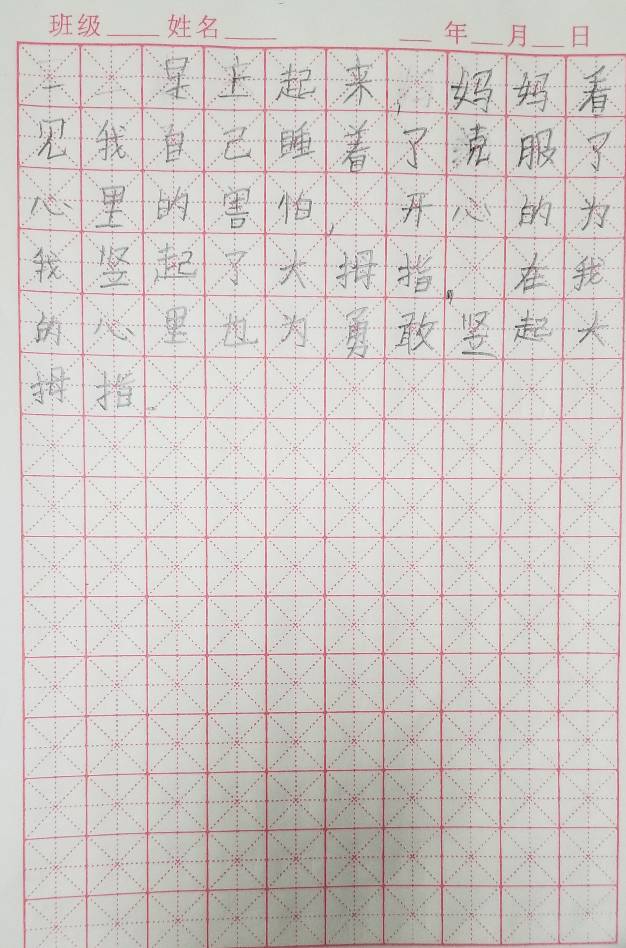 班级 姓名 年 月 日
早上起来,妈妈看
见我自己睡着了克服了
心里的害怕,开心的为
我竖起了大拇指,在我
的心里也为勇敢竖起大
拇指。